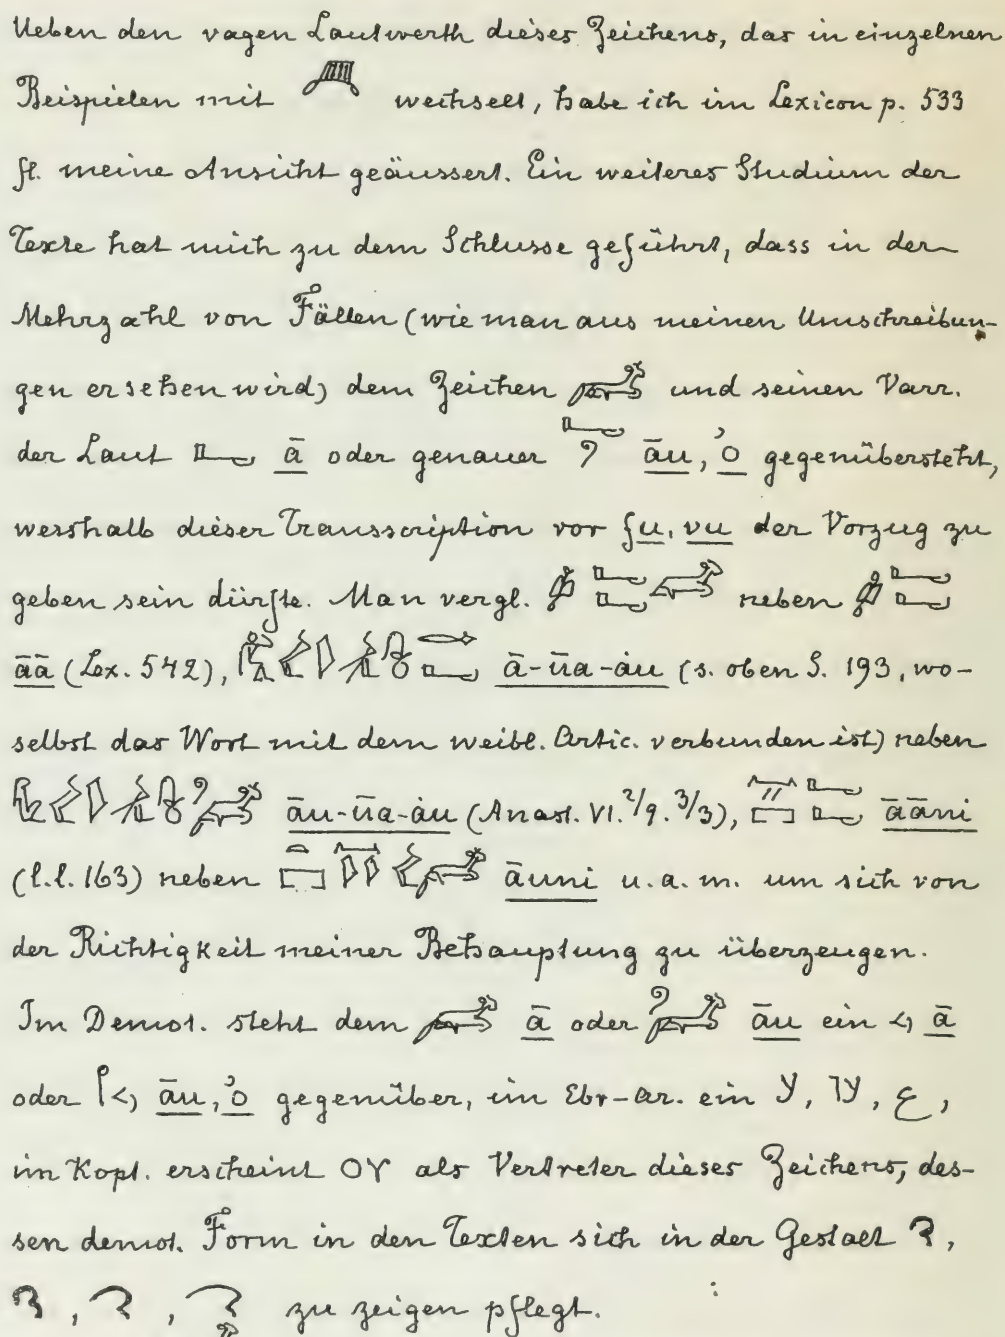 Ueben den vagen Lautwerth dieses Zeichens, das in einzelnen
Beispielen mit wechselt, habe ich im Lexicon p. 533
fl. meine Ansicht geäussert. Ein weiteres Studium der
Texte hat mich zu dem Schlusse geführt, dass in der
Mehrzahl von Fällen (wie man aus meinen Umschreibun-
gen ersehen wird) dem Zeichen und seinen Varr.
der Laut ā oder genauer āu, ʾo gegenübersteht,
wesshalb dieser Transscription vor fu, vu der Vorzug zu
geben sein dürfte. Man vergl. neben
āā (Lex. 542), ā-ūa-ȧu (s. oben S. 193, wo-
selbst das Wort mit dem weibl. Artic. verbunden ist) neben
āu-ūa-ȧu (Anast. VI. 2/9. 3/3), āāni
(l.l. 163) neben āuni u. a. m. um sich von
der Richtigkeit meiner Behauptung zu überzeugen.
Im Demot. steht dem ā oder āu ein ā
oder āu, ʾo gegenüber, im Ebr-ar. ein ע, עו, ع,
im Kopt. erscheint ΟΥ als Vertreter dieses Zeichens, des-
sen demot. Form in den Texten sich in der Gestalt
zu zeigen pflegt.